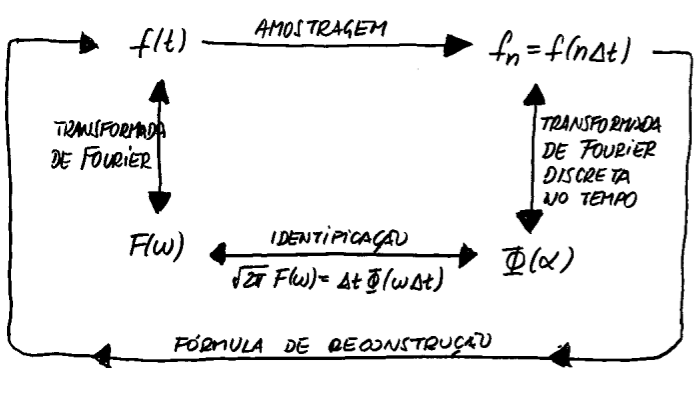 f(t)
AMOSTRAGEM
fₙ = f(nΔt)
TRANSFORMADA
DE FOURIER
TRANSFORMADA
DE FOURIER
DISCRETA
NO TEMPO
F(ω)
IDENTIFICAÇÃO
√2π F(ω) = Δt Φ(ωΔt)
Φ(α)
FÓRMULA DE RECONSTRUÇÃO